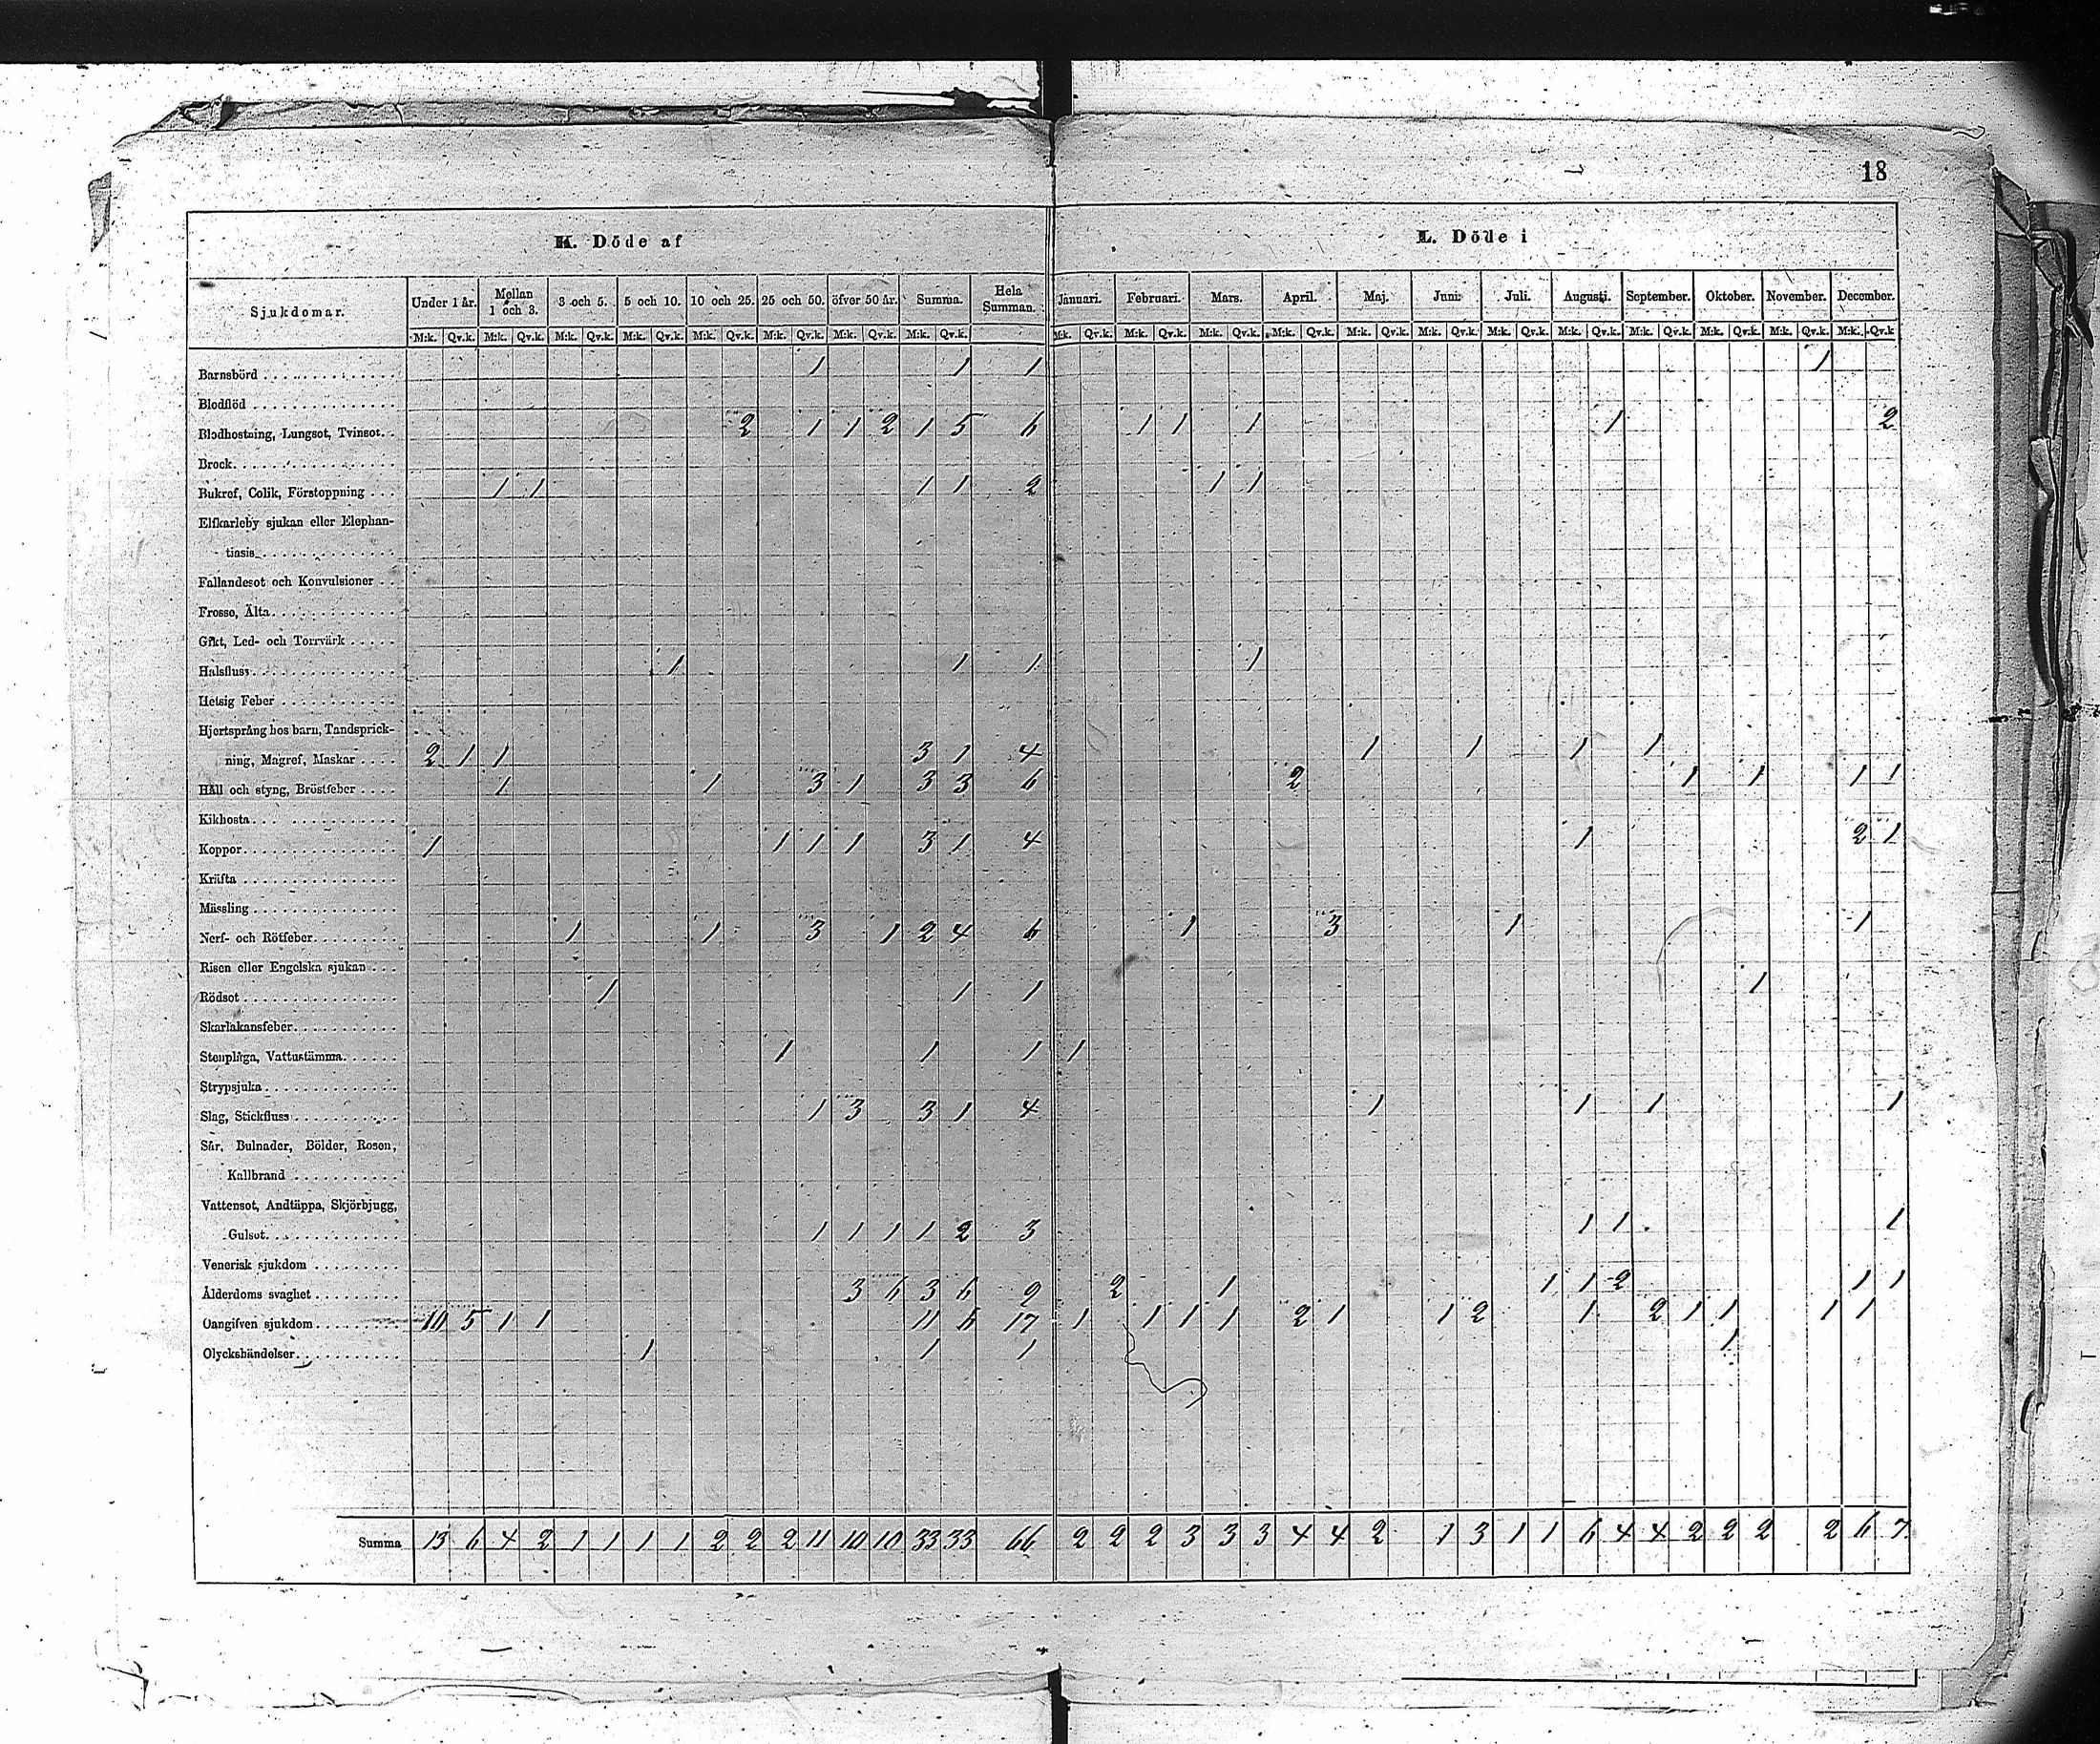 18
K. Döde af L. Döde i
Sjukdomar. Under 1 år. Mellan 1 och 3. 3 och 5. 5 och 10. 10 och 25. 25 och 50. öfver 50 år. Summa. Hela Summan. Januari. Februari. Mars. April. Maj. Juni Juli. Augusti. September. Oktober. November. December.
M:k. Qv.k. M:k. Qv.k. M:k. Qv.k. M:k. Qv.k. M:k. Qv.k. M:k. Qv.k. M:k. Qv.k. M:k. Qv.k. M:k. Qv.k. M:k. Qv.k. M:k. Qv.k. M:k. Qv.k. M:k. Qv.k. M:k. Qv.k. M:k. Qv.k. M:k. Qv.k. M:k. Qv.k. M:k. Qv.k. M:k. Qv.k. M:k. Qv.k
Barnsbörd 1 1 1 1
Blodflöd
Blodhostning, Lungsot, Tvinsot. 2 1 1 2 1 5 6 1 1 1 1 2
Brock
Bukref, Colik, Förstoppning 1 1 1 1 2 1 1
Elfkarleby sjukan eller Elephan-
tiasis
Fallandesot och Konvulsioner
Frossa, Älta
Gikt, Led- och Torrvärk
Halsfluss 1 1 1 1
Hetsig Feber
Hjertsprång hos barn, Tandsprick-
ning, Magref, Maskar 2 1 1 3 1 4 1 1 1 1
Håll och styng, Bröstfeber 1 1 3 1 3 3 6 2 1 1 1 1
Kikhosta
Koppor 1 1 1 1 3 1 4 1 2 1
Kräfta
Mässling
Nerf- och Rötfeber 1 1 3 1 2 4 6 1 3 1 1
Risen eller Engelska sjukan
Rödsot 1 1 1 1
Skarlakansfeber
Stenplåga, Vattustämma 1 1 1 1
Strypsjuka
Slag, Stickfluss 1 3 3 1 4 1 1 1 1
Sår, Bulnader, Bölder, Rosen,
Kallbrand
Vattensot, Andtäppa, Skjörbjugg,
Gulsot 1 1 1 1 2 3 1 1 1
Venerisk sjukdom
Ålderdoms svaghet 3 6 3 6 9 2 1 1 1 2 1 1
Oangifven sjukdom 10 5 1 1 11 6 17 1 1 1 1 2 1 1 2 1 2 1 1 1 1
Olyckshändelser 1 1 1 1
Summa 13 6 4 2 1 1 1 1 2 2 2 11 10 10 33 33 66 2 2 2 3 3 3 4 4 2 1 3 1 1 6 4 4 2 2 2 2 6 7